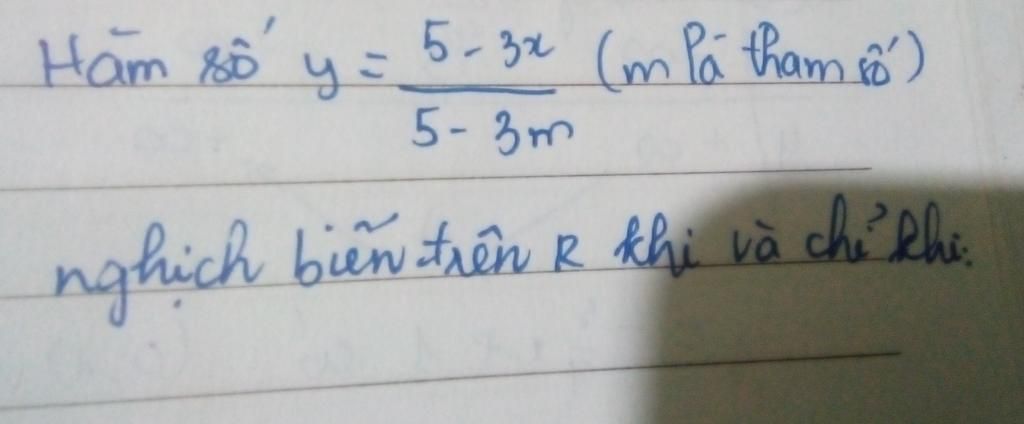 Hàm số y = \frac{5 - 3x}{5 - 3m} (m là tham số)
nghịch biến trên R khi và chỉ khi: